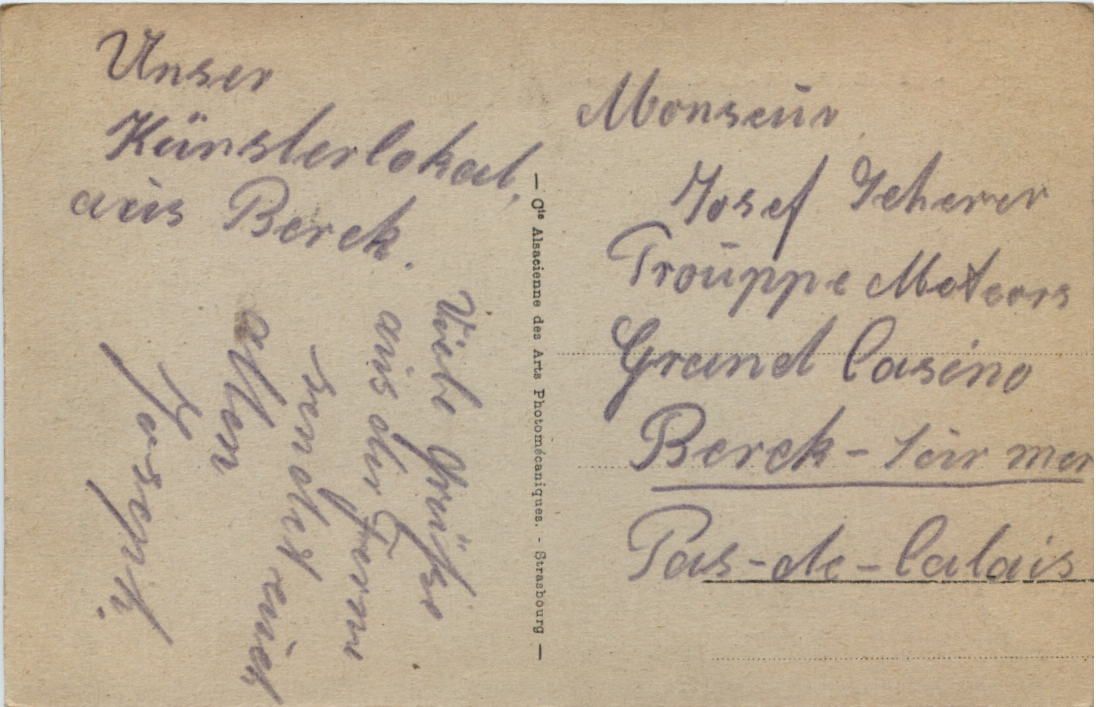 Unser
Künsterlokal,
aus Berck.
Viele Grüße
aus der Ferne
sendet euch
allen
Joseph.
— Cie Alsacienne des Arts Photomécaniques. - Strasbourg —
Monseur
Josef Scherer
Trouppe Meteors
Grand Casino
Berck - Sur mer
Pas-de-Calais